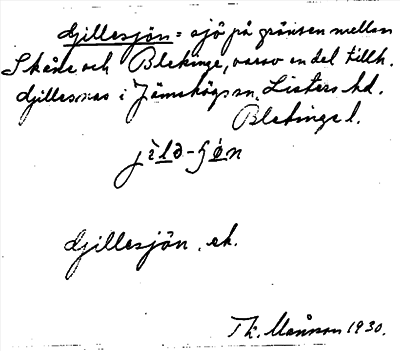 Gillesjön = sjö på gränsen mellan
Skåne och Blekinge, varav en del tillh.
Gillesnäs i Jämshögs sn, Listers hd.
Blekinge l.
Gillesjön. ek.
Th. Månsson 1930.